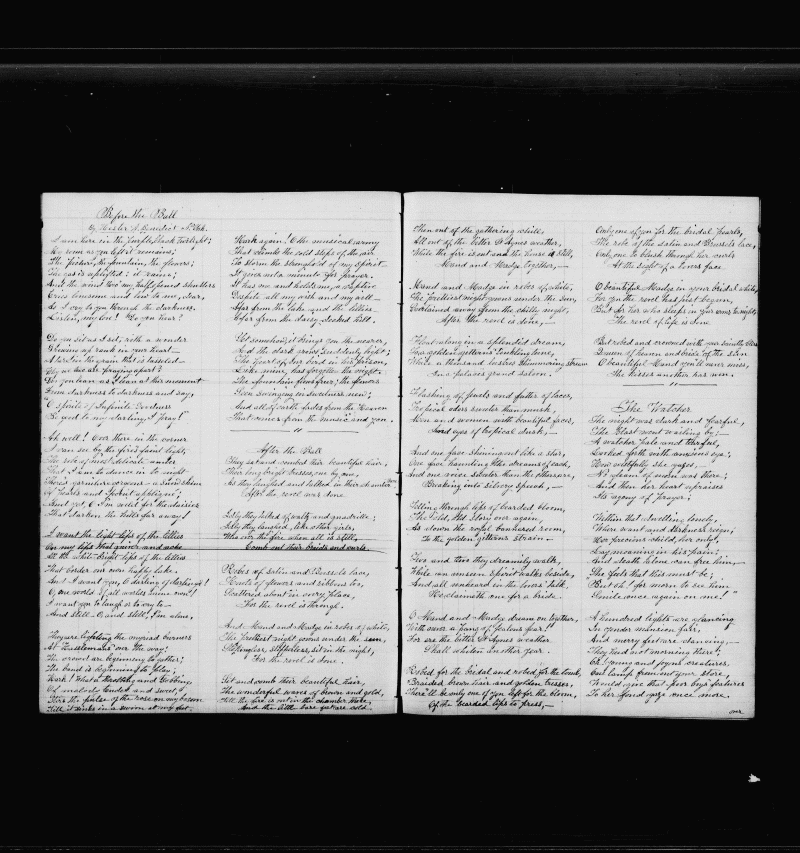 Before the Ball
By Hester A. Benedict
I am here in the purple, black twilight;
The room as you left it remains;
The fishes, the fountain, the flower;
The gas is uplifted: it rains;
And the wind two my half-closed shutters
Cries lonesome and low to me, dear,
As I cry to you through the darkness.
Listen, my love! Do you hear?
Do you sit as I sit, with a wonder
Growing up rank in your heart—
Why we two are praying apart?
Do you lean as I lean at this moment
From darkness to darkness and say,
"O Spirit of Infinite Loveliness
Be good to my darling, I pray!"
Ah well! Over there in the corner
I can see by the fire's faint light,
The robe of most delicate amber
That I am to dance in to-night
Of pearls and
And yet, O I'm wild for the daisies
That darken the hills far away!
I want the light lips of the lilies
On my lips that quiver and ache
All the white-bright lips of the lilies
That border our own happy lake.
And I want you, O darling of darlings!
O, one world of all worlds unto me!
I want you to laugh or to cry to—
And still—O, and still, I'm alone,
They are lighting the myriad burners
At over the way;
The crowd are beginning to gather;
The band is beginning to play;
Hark! What a throbbing and sobbing
Of melody tender and sweet!
Stirs the pulse of the rose on my bosom
Till it sinks in a swoon at my feet.
Hark again! O the musical army
That climbs the cold steps of the air
To storm the stronghold of my spirit—
It gives not a minute for prayer.
It has me and holds me, a captive
Despite all my wish and my will—
Afar from the lake and the lilies
Afar from the daisy-decked hill.
Yet somehow it brings you the nearer,
And the dark grows suddenly light;
The heart of our bird in his prison,
Like mine, has forgotten the night;
The fountain flows free; the flowers
Seem swinging in sweetness new;
And all of earth fades from the Heaven
That comes from the music and you.
After the Ball
They sat and combed their beautiful hair,
Their long bright tresses, one by one,
As they laughed and talked in their chamber there
After the revel was done.
Idly they talked of waltz and quadrille;
Idly they laughed, like other girls,
Who over the fire when all is still,
Comb out their braids and curls.
Robes of satin and Brussels lace,
Knots of flowers and ribbons too,
Scattered about in every place,
For the revel is through.
And Maud and Madge in robes of white,
The prettiest night gowns under the sun,
Stockingless, slipperless, sit in the night,
For the revel is done.
Sit and comb their beautiful hair,
The wonderful waves of brown and gold,
Till the fire is out in the chamber there,
And the little bare feet are cold.
Then out of the gathering chill,
All out of the bitter St Agnes weather,
While the fire is out and the house is still,
Maud and Madge together,—
Maud and Madge in robes of white,
The prettiest night gowns under the sun,
Curtained away from the chilly night,
After the revel is done,—
Float along in a splendid dream,
To a golden gittern's tinkling tune,
While a thousand lustres shimmering stream
In a palace's grand saloon.
Flashing of jewels and flutter of laces,
Tropical odors sweeter than musk,
Men and women with beautiful faces,
And eyes of tropical dusk,—
And one face shining out like a star,
One face haunting the dreams of each,
And one voice sweeter than the others are,
Breaking into silvery speech,—
Telling through lips of bearded bloom,
The old, old story over again,
As down the royal bannered room,
To the golden gittern's strain—
Two and two they dreamily walk,
While an unseen spirit walks beside,
And all unheard in the lovers' talk,
He claimeth one for a bride.
O Maud and Madge dream on together,
With never a pang of jealous fear!
For ere the bitter St Agnes weather
Shall whiten another year.
Robed for the bridal and robed for the tomb,
Braided brown hair and golden tresses,
There'll be only one of you left for the bloom,
Of the bearded lips to press,—
Only one of you for the bridal pearls,
The robe of the satin and Brussels lace,
Only one to blush through her curls
At the sight of a lovers face.
O beautiful Madge in your bridal white,
For you the revel has just begun,
But for her who sleeps in your arms to-night,
The revel of life is done.
But robed and crowned with your saintly bliss
Queen of heaven and bride of the sun
O beautiful Maud you'll never miss,
The kisses another has won.
The Watcher
The night was dark and fearful,
The blast went wailing by;—
A watcher pale and tearful,
Looked forth with anxious eye;
How wistfully she gazes,—
No gleam of morn was there;
And then her heart upraises
Its agony of prayer;
Within that dwelling lonely,
Where want and darkness reign;
Her precious child, her only,
Lay moaning in his pain;
And death alone can free him,—
She feels that this must be,
But oh! for morn to see him
Smile once again on me!"
A hundred lights are glancing
In yonder mansion fair,
And merry feet are dancing,—
They heed not morning there;
Oh! Young and joyous creatures
One lamp from out your store,
Would give that poor boy's features
To her fond gaze once more.
over